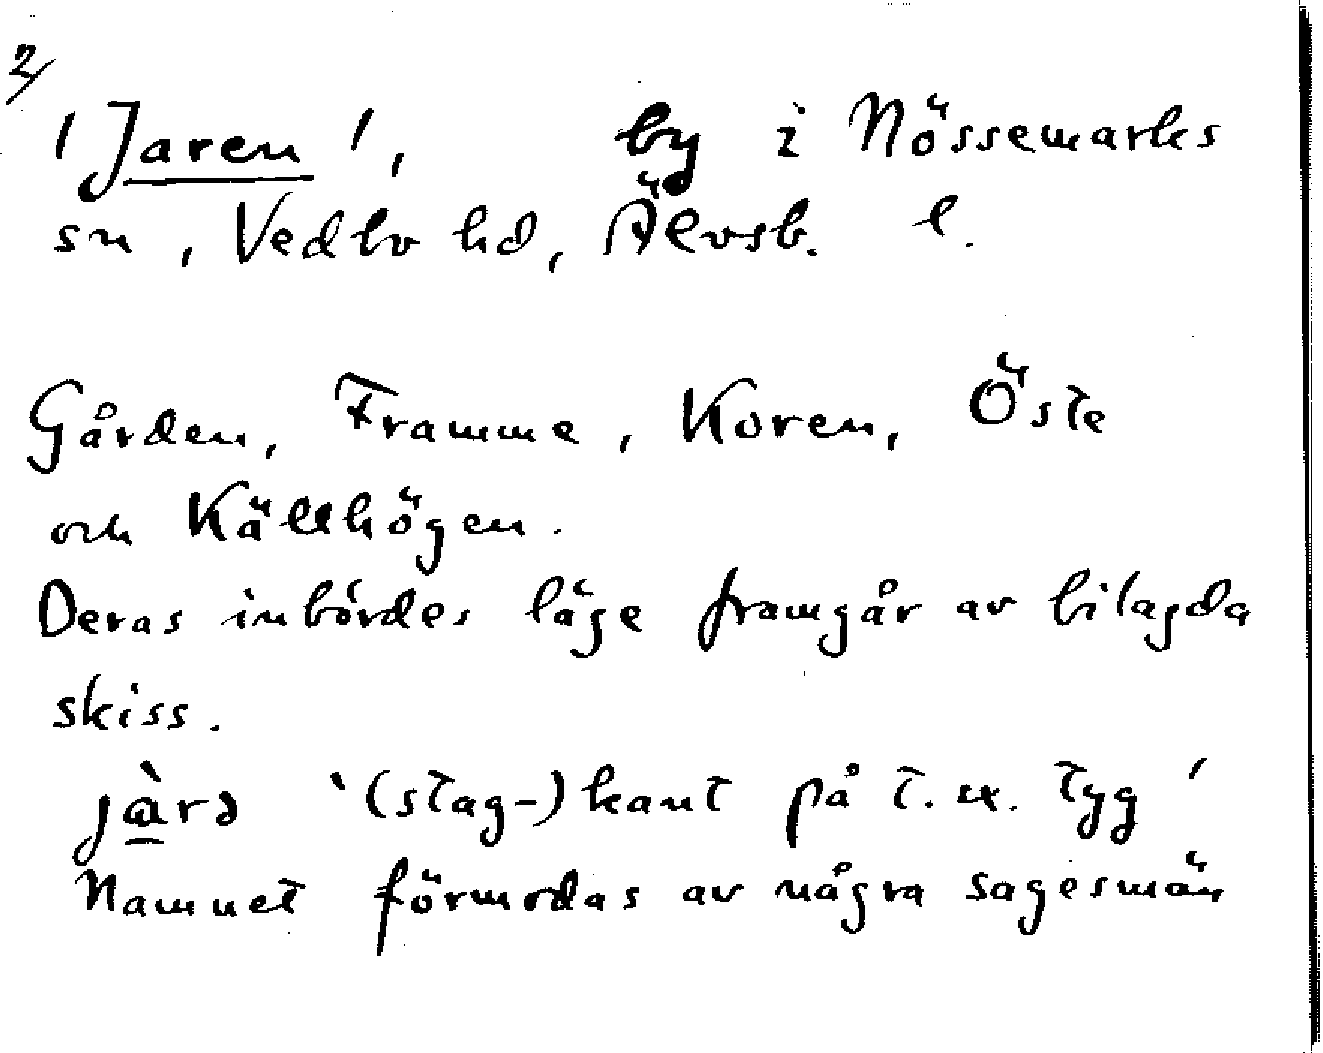 2/
/Jaren/, by i Nössemarks
sn, Vedbo hd, Älvsb. l.
Gården, Framme, Koren, Öste
och Källhögen.
Deras inbördes läge framgår av bilagda
skiss.
'(stag-)kant på t. ex. tyg'
Namnet förmodas av några sagesmän